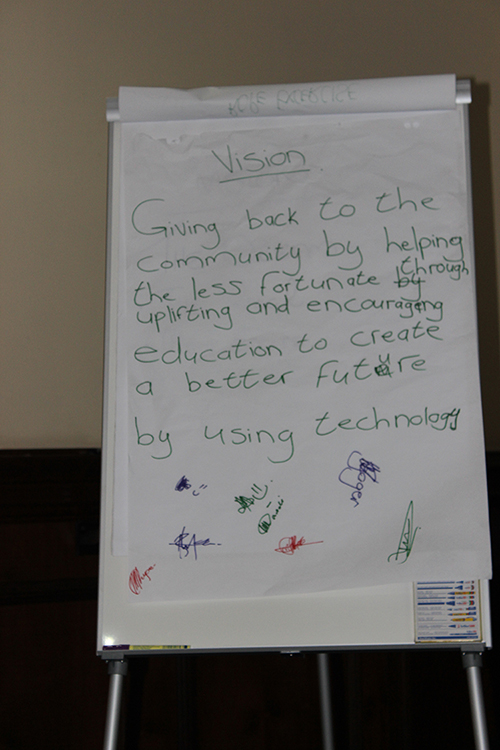 Vision
Giving back to the
community by helping
the less fortunate through
uplifting and encouraging
education to create
a better future
by using technology